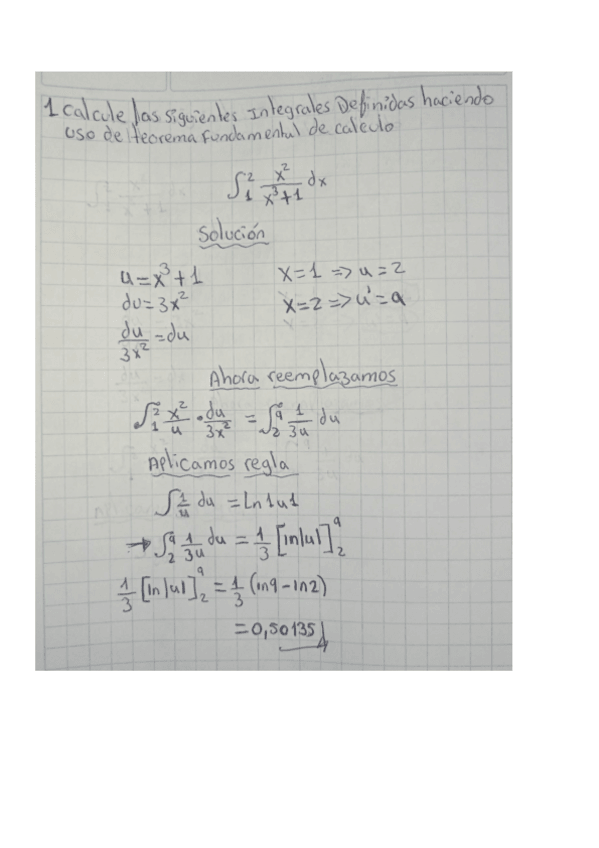 1 Calcule las siguientes Integrales Definidas haciendo
uso del teorema fundamental de calculo
∫₁² x²/(x³+1) dx
Solución
u = x³ + 1    x=1 => u=2
du = 3x²    x=2 => u=9
du/3x² = du
Ahora reemplazamos
∫₁² x²/u · du/3x² = ∫₂⁹ 1/3u du
Aplicamos regla
∫ 1/u du = Ln|u|
→ ∫₂⁹ 1/3u du = 1/3 [ln|u|]₂⁹
1/3 [ln|u|]₂⁹ = 1/3 (ln9 - ln2)
= 0,50135